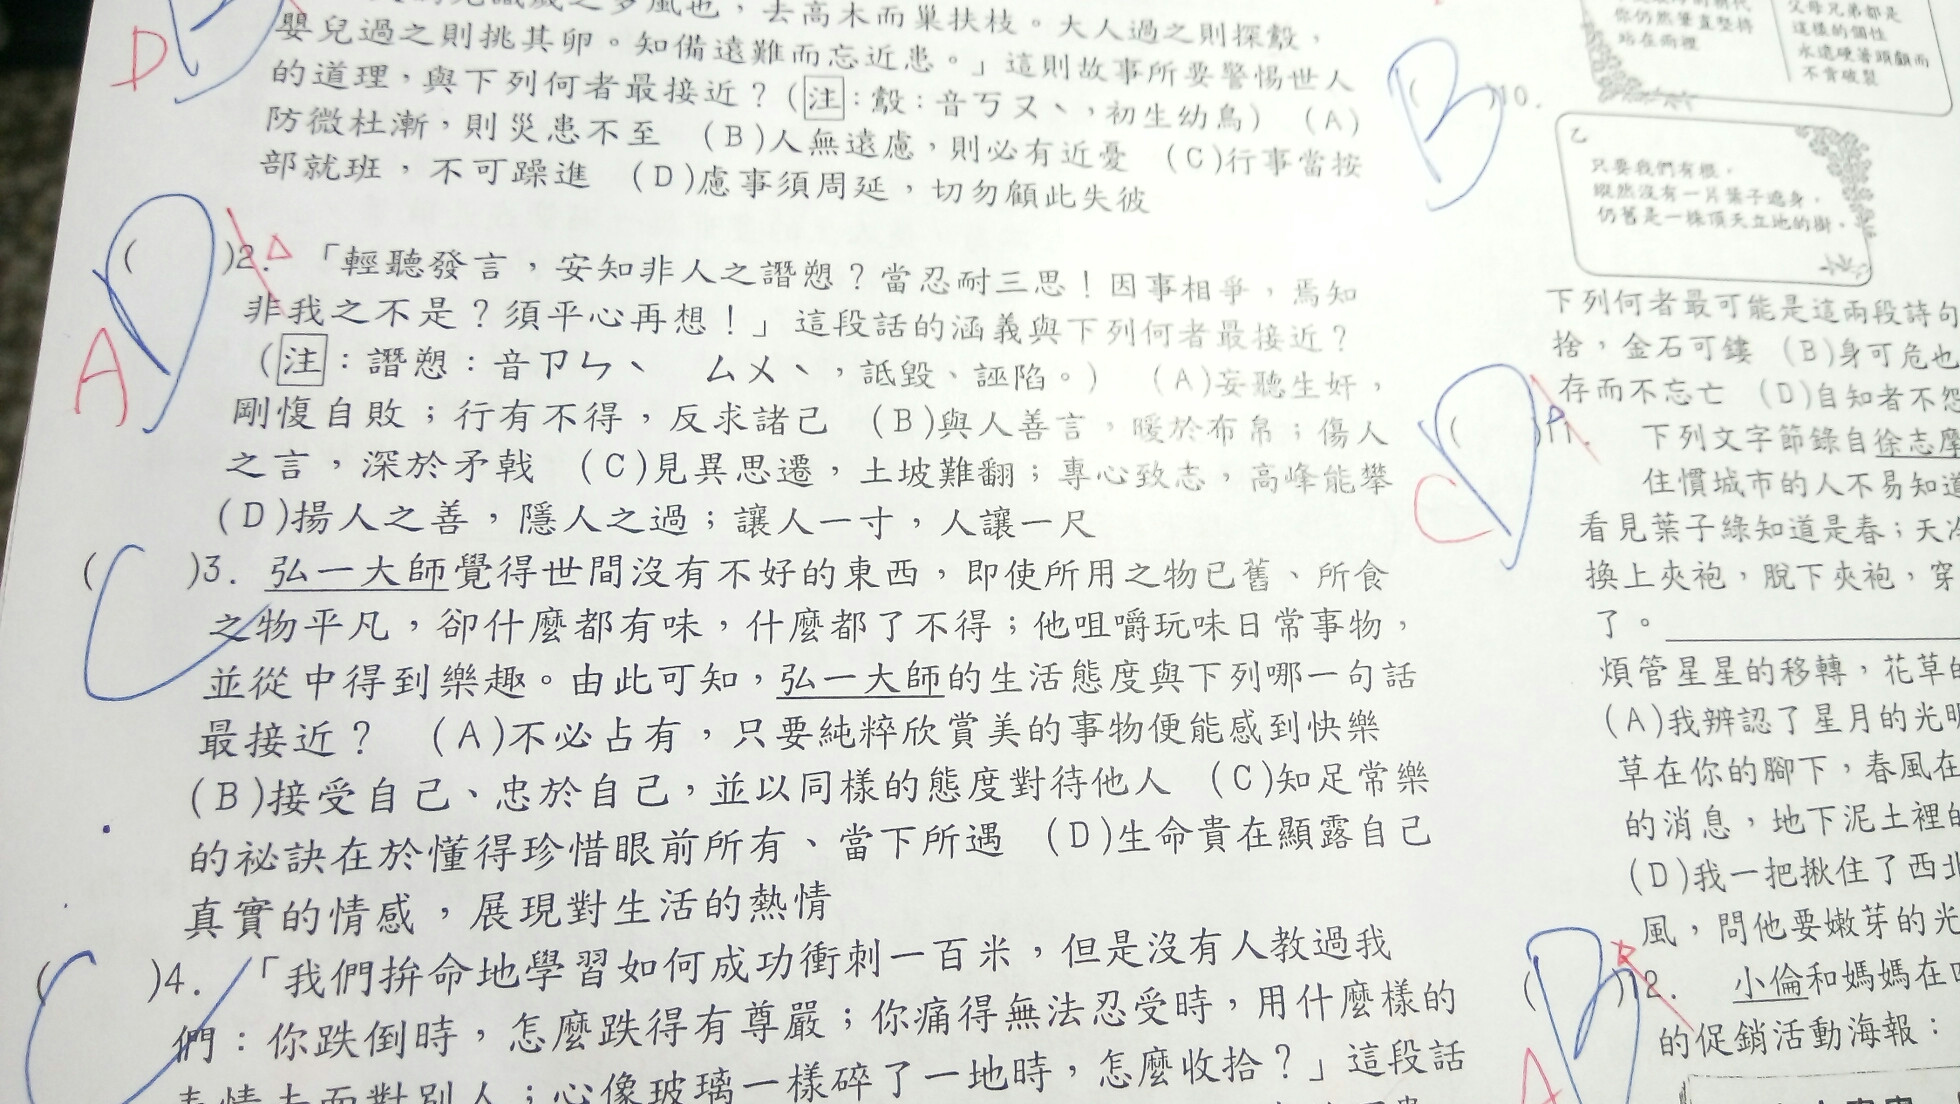 之多風也，去高木而巢扶枝。大人過之則探鷇，
嬰兒過之則挑其卵。知備遠難而忘近患。」這則故事所要警惕世人
的道理，與下列何者最接近？（注：鷇：音ㄎㄡˋ，初生幼鳥） (A)
防微杜漸，則災患不至 (B)人無遠慮，則必有近憂 (C)行事當按
部就班，不可躁進 (D)慮事須周延，切勿顧此失彼
D
( )2. 「輕聽發言，安知非人之譖愬？當忍耐三思！因事相爭，焉知
非我之不是？須平心再想！」這段話的涵義與下列何者最接近？
（注：譖愬：音ㄗㄣˋ ㄙㄨˋ，詆毀、誣陷。） (A)妄聽生奸，
剛愎自敗；行有不得，反求諸己 (B)與人善言，暖於布帛；傷人
之言，深於矛戟 (C)見異思遷，土坡難翻；專心致志，高峰能攀
(D)揚人之善，隱人之過；讓人一寸，人讓一尺
D
A
( )3. 弘一大師覺得世間沒有不好的東西，即使所用之物已舊、所食
之物平凡，卻什麼都有味，什麼都了不得；他咀嚼玩味日常事物，
並從中得到樂趣。由此可知，弘一大師的生活態度與下列哪一句話
最接近？ (A)不必占有，只要純粹欣賞美的事物便能感到快樂
(B)接受自己、忠於自己，並以同樣的態度對待他人 (C)知足常樂
的祕訣在於懂得珍惜眼前所有、當下所遇 (D)生命貴在顯露自己
真實的情感，展現對生活的熱情
C
( )4. 「我們拚命地學習如何成功衝刺一百米，但是沒有人教過我
們：你跌倒時，怎麼跌得有尊嚴；你痛得無法忍受時，用什麼樣的
表情去面對別人；心像玻璃一樣碎了一地時，怎麼收拾？」這段話
C
你仍然筆直堅持
站在雨裡
父母兄弟都是
這樣的個性
永遠硬著頭顱而
不肯破裂
B
)10.
乙
只要我們有根，
縱然沒有一片葉子遮身，
仍舊是一株頂天立地的樹。
下列何者最可能是這兩段詩句
捨，金石可鏤 (B)身可危也
存而不忘亡 (D)自知者不怨
D
C
下列文字節錄自徐志摩
住慣城市的人不易知道
看見葉子綠知道是春；天冷
換上夾袍，脫下夾袍，穿
了。
煩管星星的移轉，花草的
(A)我辨認了星月的光明
草在你的腳下，春風在
的消息，地下泥土裡的
(D)我一把揪住了西北
風，問他要嫩芽的光
B
A
( )12. 小倫和媽媽在
的促銷活動海報：